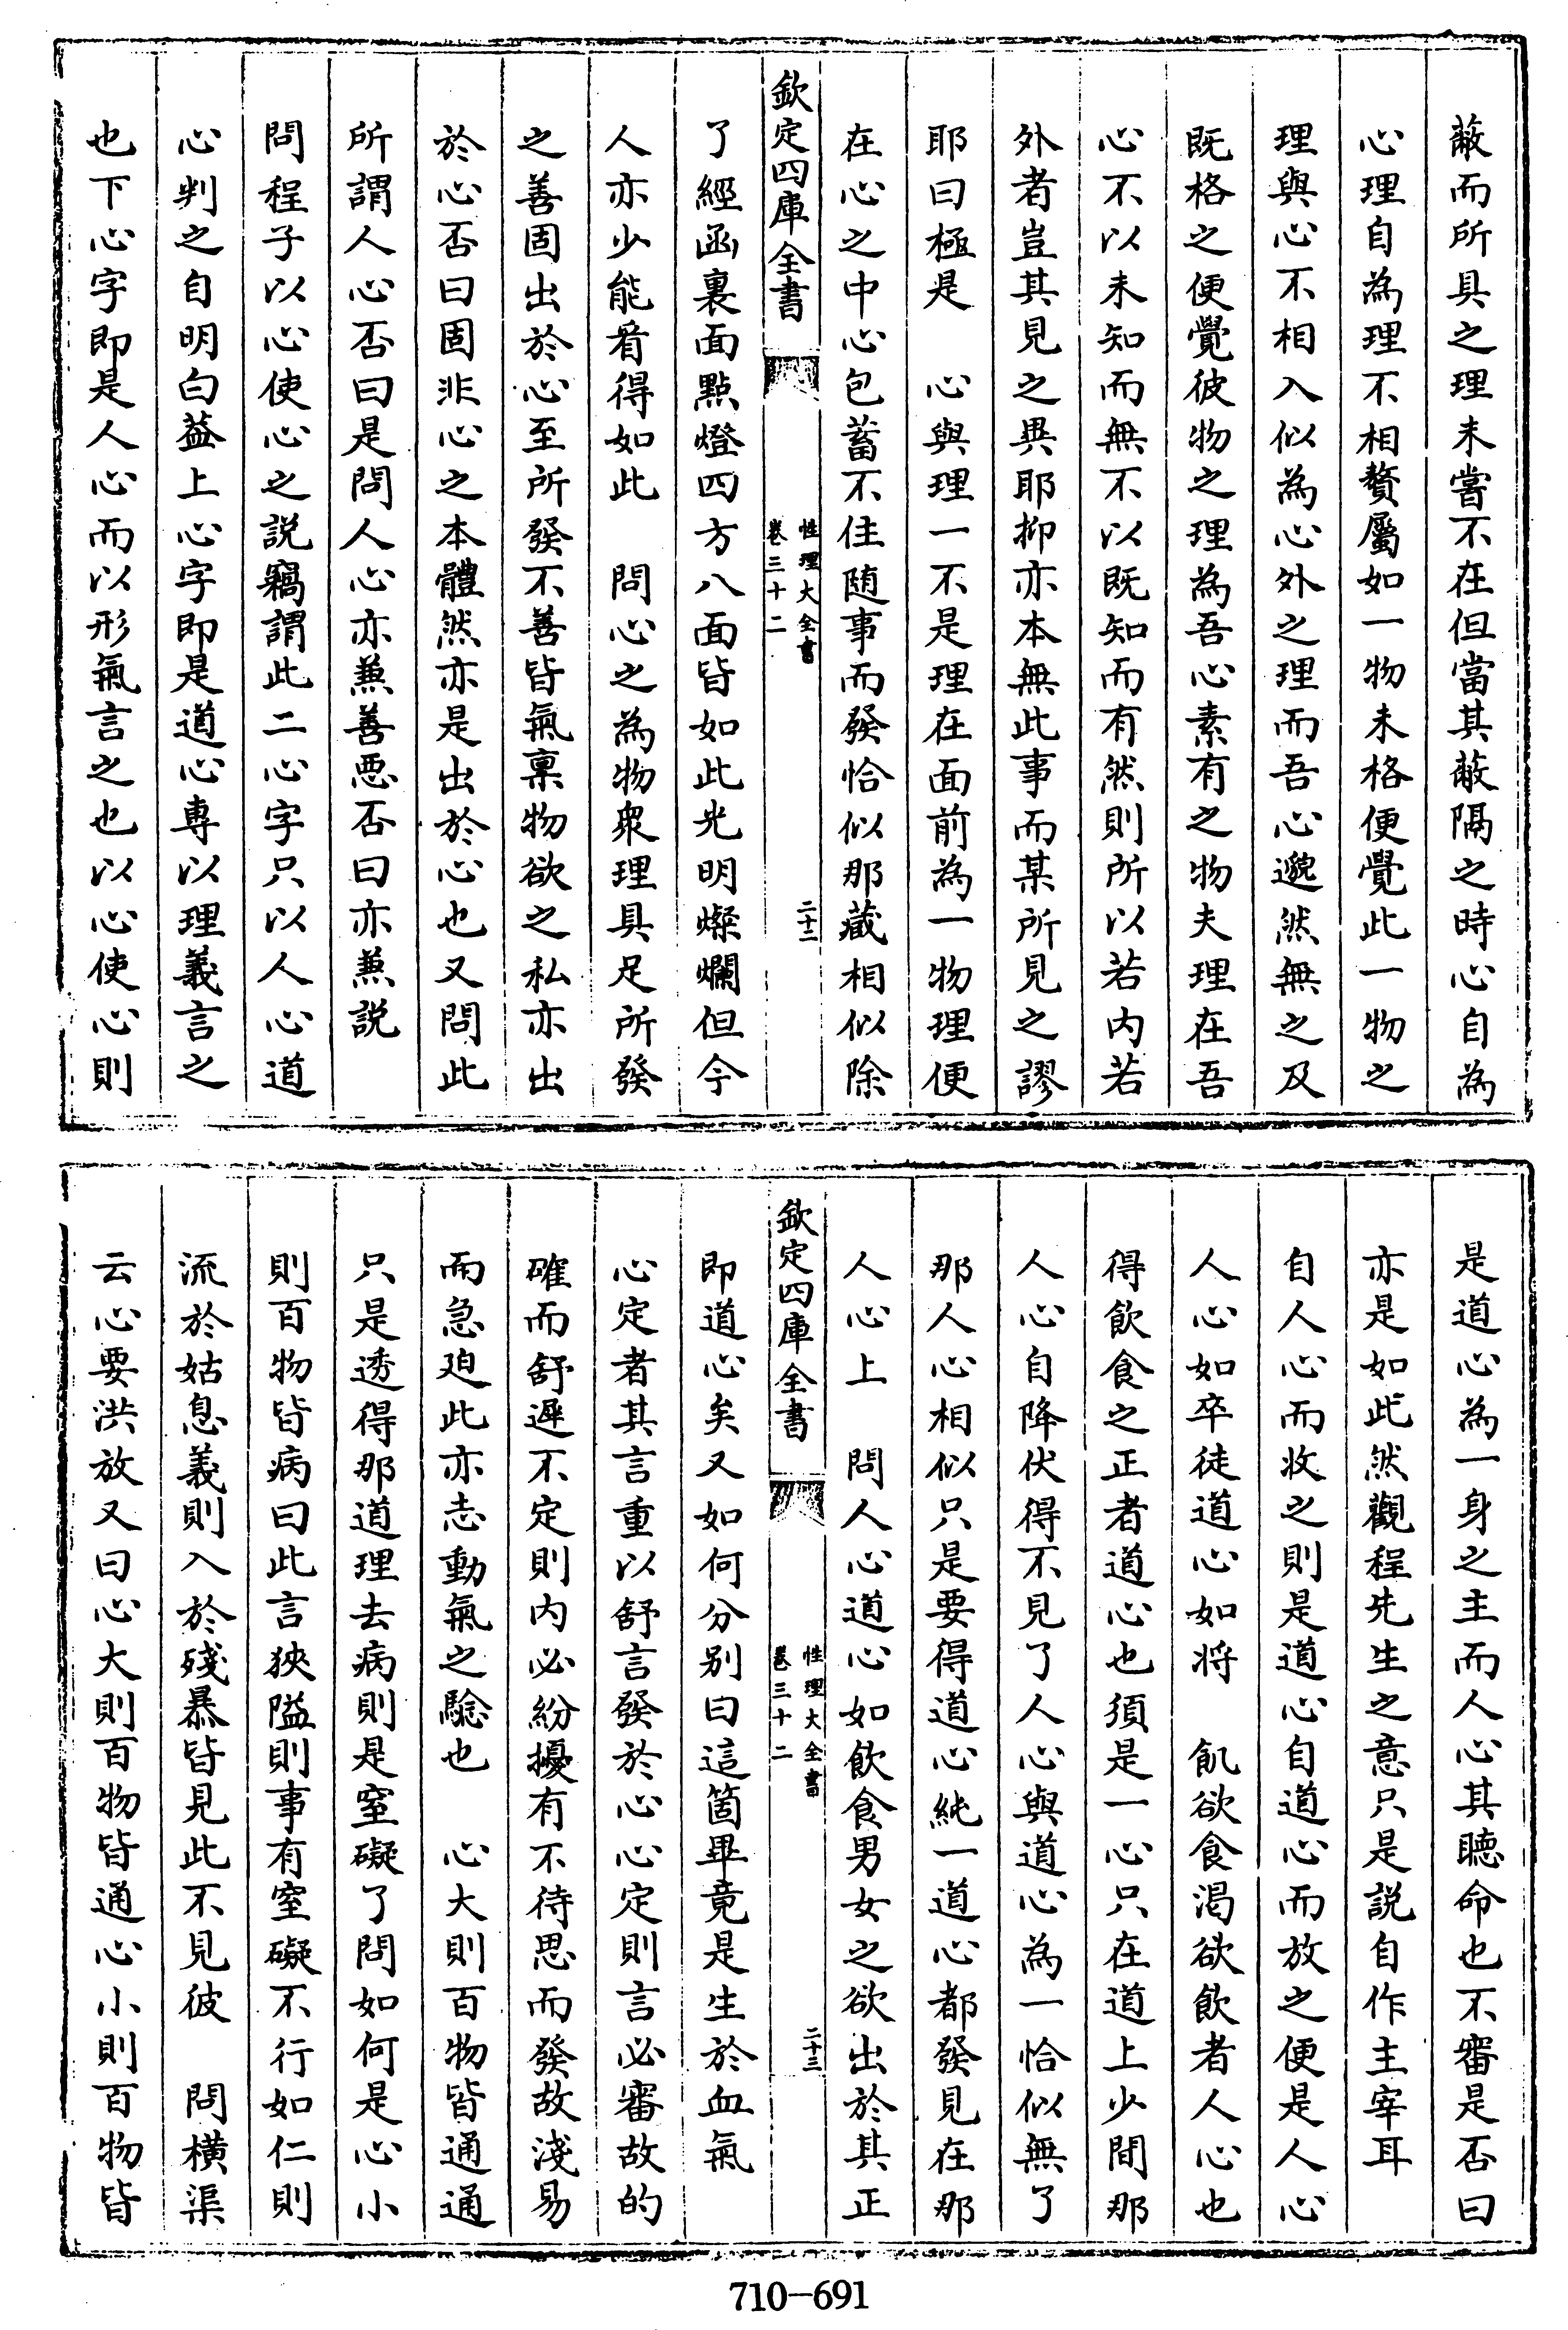 蔽而所具之理未嘗不在但當其蔽隔之時心自為
心理自為理不相贅屬如一物未格便覺此一物之
理與心不相入似為心外之理而吾心邈然無之及
既格之便覺彼物之理為吾心素有之物夫理在吾
心不以未知而無不以既知而有然則所以若内若
外者豈其見之異耶抑亦本無此事而某所見之謬
耶曰極是　心與理一不是理在面前為一物理便
在心之中心包蓄不住随事而發恰似那藏相似除
欽定四庫全書
性理大全書
卷三十二
二十二
了經函裏面點燈四方八面皆如此光明燦爛但今
人亦少能看得如此　問心之為物衆理具足所發
之善固出於心至所發不善皆氣稟物欲之私亦出
於心否曰固非心之本體然亦是出於心也又問此
所謂人心否曰是問人心亦兼善惡否曰亦兼説
問程子以心使心之説竊謂此二心字只以人心道
心判之自明白葢上心字即是道心專以理義言之
也下心字即是人心而以形氣言之也以心使心則
是道心為一身之主而人心其聽命也不審是否曰
亦是如此然觀程先生之意只是説自作主宰耳
自人心而收之則是道心自道心而放之便是人心
人心如卒徒道心如將　飢欲食渴欲飲者人心也
得飲食之正者道心也須是一心只在道上少間那
人心自降伏得不見了人心與道心為一恰似無了
那人心相似只是要得道心純一道心都發見在那
人心上　問人心道心如飲食男女之欲出於其正
欽定四庫全書
性理大全書
卷三十二
二十三
即道心矣又如何分别曰這箇畢竟是生於血氣
心定者其言重以舒言發於心心定則言必審故的
確而舒遲不定則内必紛擾有不待思而發故淺易
而急廹此亦志動氣之騐也　心大則百物皆通通
只是透得那道理去病則是窒礙了問如何是心小
則百物皆病曰此言狹隘則事有窒礙不行如仁則
流於姑息義則入於殘暴皆見此不見彼　問橫渠
云心要洪放又曰心大則百物皆通心小則百物皆
710-691